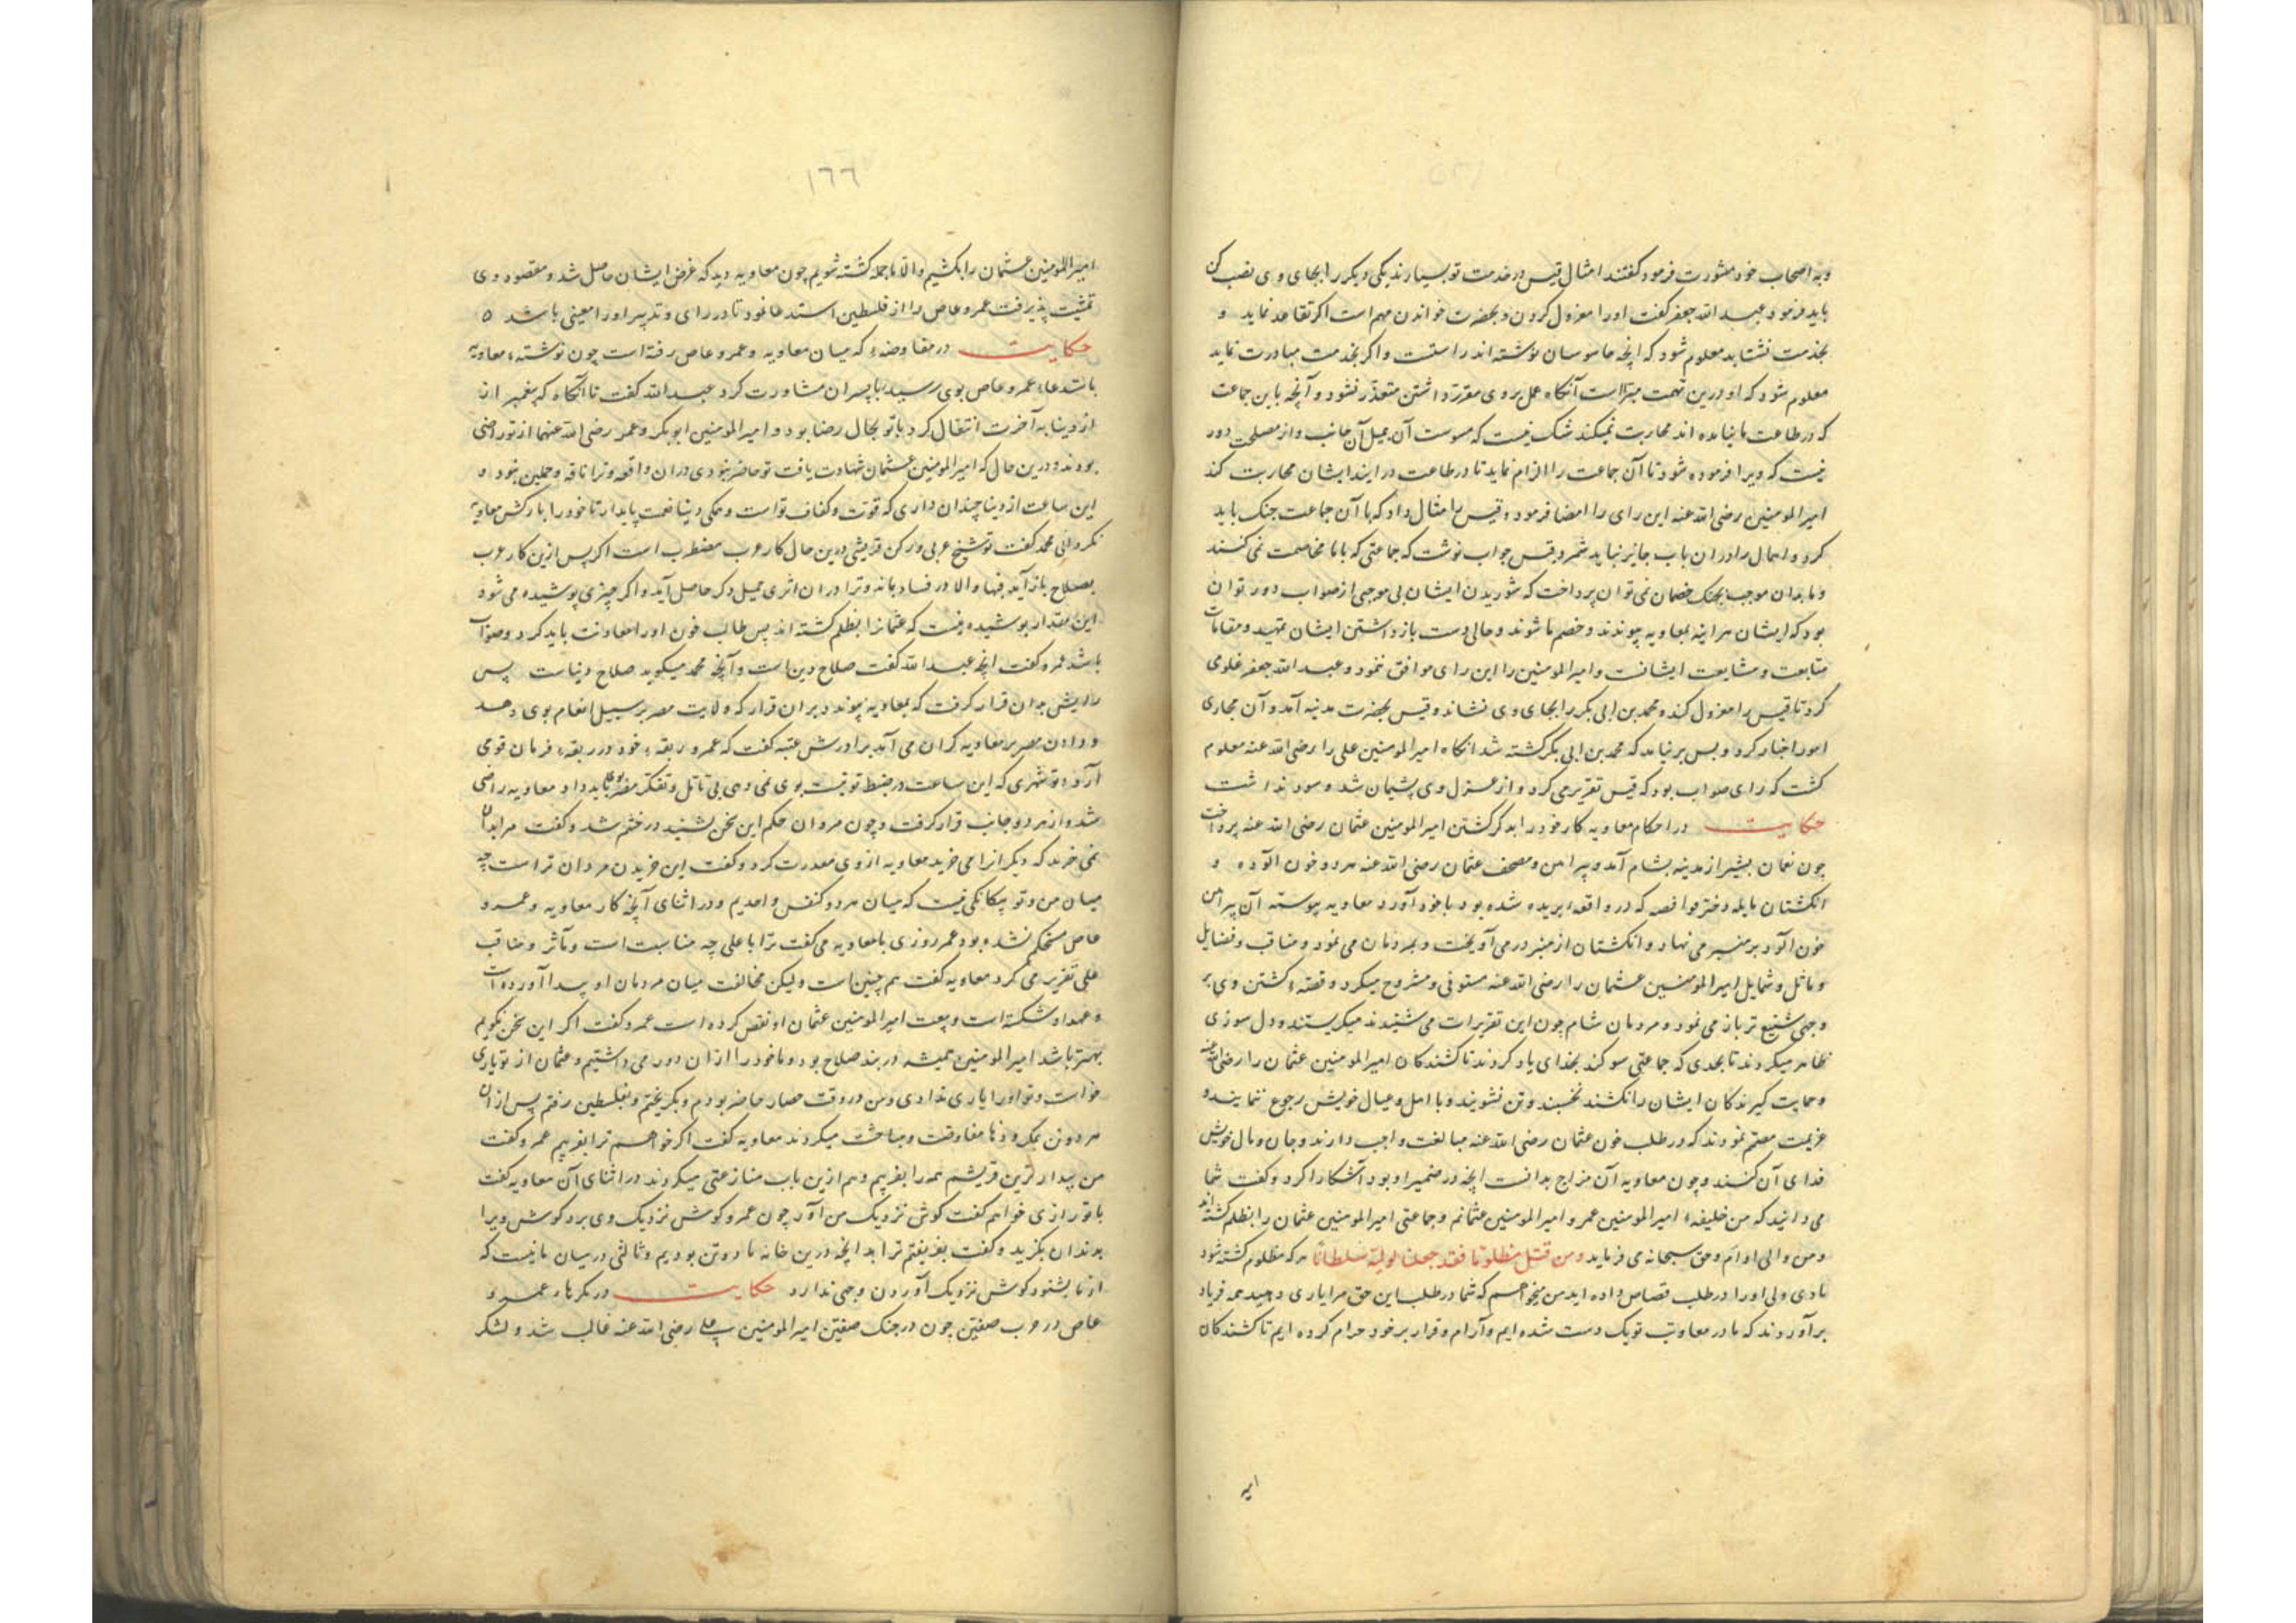 وبه اصحاب خود مشورت فرمود گفتند امثال قیس در خدمت تو بسیارند یکی دیگر را بجای وی نصب کن
باید فرمود عبد الله جعفر گفت اورا معزول کردن و بحضرت خواندن مهم است اکر تقاعد نماید و
بخدمت نشتابد معلوم شود که انچه جاسوسان نوشته اند راستست واکر بخدمت مبادرت نماید
معلوم شود که او درین تهمت مبراست آنگاه عمل بر وی مقرر داشتن متعذر نشود و آنچه باین جماعت
که در طاعت ما نیامده اند محاربت نمیکند شک نیست که آن میل آن جانب و از مصلحت دور
نیست که ویرا فرموده شود تا آن جماعت را الزام نماید تا در طاعت در ایند ایشان محاربت کند
امیر المومنین رضی الله عنه این رای را امضا فرمود و قیس را مثال داد که با آن جماعت جنک باید
کرد و اهمال را در ان باب جایز نباید شمرد قیس جواب نوشت که جماعتی که با ما مخاصمت نمی کنند
وما بدان موجب بجنک خصمان نمی توان پرداخت که شوریدن ایشان بی موجبی از صواب دور توان
بود که ایشان هراینه بمعاویه پیوندند و خصم ما شوند و حالی دست باز داشتن ایشان
متابعت و مشایعت ایشانست و امیر المومنین را این رای موافق ننمود و عبد الله جعفر غلوی
کرد تا قیس را معزول کند و محمد بن ابی بکر را بجای وی نشاند و قیس بحضرت مدینه آمد و آن مجاری
امور اخبار کرد و بس بر نیامد که محمد بن ابی بکر کشته شد انکاه امیر المومنین علی را رضی الله عنه معلوم
کشت که رای صواب بود که قیس تقریر می کرد و از عزل وی پشیمان شد و سود نداشت
حکایت در احکام معاویه کار خود را بذکر کشتن امیر المومنین عثمان رضی الله عنه پرداخت
چون نعمان بشیر از مدینه بشام آمد و پیراهن و مصحف عثمان رضی الله عنه هر دو خون الوده و
انکشتان نایله دختر فرافصه که در واقعه بریده شده بود با خود آورد معاویه پیوسته آن پیراهن
خون الود بر منبر می نهاد و انکشتان از منبر در می آویخت و بمردمان می نمود و مناقب و فضایل
و مآثل و شمایل امیر المومنین عثمان را رضی الله عنه مستوفی و مشروح میکرد و قصه کشتن وی بر
وجهی شنیع تر باز می نمود و مردمان شام چون این تقریرات می شنیدند میکریستند و دل سوزی
ظاهر میکردند تا بحدی که جماعتی سوکند بخدای یاد کردند تا کشندکان امیر المومنین عثمان را رضی الله عنه
وحمایت کیرندکان ایشان را نکشند نخسبند وتن نشویند و با اهل و عیال خویش رجوع ننمایند و
عزیمت مصمم نمودند که در طلب خون عثمان رضی الله عنه مبالغت واجب دارند و جان و مال خویش
فدای آن کنند و چون معاویه آن مزاج بدانست انچه در ضمیر او بود آشکارا کرد و گفت شما
می دانید که من خلیفه امیر المومنین عمر و امیر المومنین عثمانم و جماعتی امیر المومنین عثمان را بظلم کشته اند
ومن والی اوام وحق سبحانه می فرماید ومن قتل مظلوما فقد جعلنا لولیه سلطانا هر که مظلوم کشته شود
ما دی ولی اورا در طلب قصاص داده اید من میخواهم که شما در طلب این حق مرا یاری دهید همه فریاد
برآوردند که ما در معاونت تو یک دست شده ایم و آرام و قرار بر خود حرام کرده ایم تا کشندکان
امیر
١٦٦
امیر المومنین عثمان را بکشیم والا ما جمله کشته شویم چون معاویه دید که غرض ایشان حاصل شد و مقصود وی
تمشیت پذیرفت عمرو عاص را از فلسطین استدعا نمود تا در رای و تدبیر اورا معینی باشد ٥
حکایت در مفاوضه که میان معاویه و عمرو عاص رفته است چون نوشته معاویه
باستدعاء عمرو عاص بوی رسید با پسران مشاورت کرد عبد الله گفت تا آنکاه که پیغمبر از
از دنیا به آخرت انتقال کرد با تو بحال رضا بود و امیر المومنین ابو بکر و عمر رضی الله عنهما از تو راضی
بودند و درین حال که امیر المومنین عثمان شهادت یافت تو حاضر نبودی در ان واقعه و ترا ناقه و جملین نبود و
این ساعت از دنیا چندان داری که قوت و کفاف تو است و همکی دنیا نعمت پایدار تا خود را بارکش معاویه
نکردانی محمد گفت تو شیخ عربی و رکن قریشی درین حال کار عرب مضطرب است اکر پس ازین کار عرب
بصلاح باز آید فبها والا در فساد بماند و ترا در ان اثری جمیل و ذکر حاصل آید و اکر چیزی پوشیده می شود
این مقدار پوشیده نیست که عثمانرا بظلم کشته اند پس طالب خون اورا معاونت باید کرد و صواب
باشد عمرو گفت انچه عبد الله گفت صلاح دین است و آنچه محمد میکوید صلاح دنیاست پس
رایش بدان قرار کرفت که بمعاویه پیوندد بر ان قرار که ولایت مصر بر سبیل انعام بوی دهد
ودادن مصر بر معاویه کران می آمد برادرش عتبه گفت که عمرو ربقه خود در ربقه فرمان تو می
آرد و تو شهری که این ساعت در ضبط تو نیست بوی نمی دهی بی تامل و تفکر مصر بوی باید داد معاویه راضی
شد و از هر دو جانب قرار کرفت و چون مروان حکم این سخن بشنید در خشم شد و گفت مرا بدان
نمی خرند که دیکرانرا می خرید معاویه از وی معذرت کرد و گفت این خریدن مردان تراست چه
میان من و تو بیکانکی نیست که میان هر دو کنفس واحدیم و در اثنای آنچه کار معاویه و عمرو
عاص مستحکم نشده بود عمرو روزی با معاویه می گفت ترا با علی چه مناسبت است و مآثر و مناقب
علی تقریر می کرد معاویه گفت هم چنین است ولیکن مخالفت میان مردمان او پیدا آورده است
و عهد او شکسته است و بیعت امیر المومنین عثمان او نقض کرده است عمرو گفت اکر این سخن نکویم
بهتر باشد امیر المومنین همیشه در بند صلاح بود و ما خود را از ان دور می داشتیم و عثمان از تو یاری
خواست و تو اورا یاری ندادی و من در وقت حصار حاضر بودم و بکریختم و بفلسطین رفتم پس از ان
هر دو تن مفاوضت و مباحثت میکردند معاویه گفت اکر خواهم ترا بفریبم عمرو گفت
من بیدارترین قریشم همه را بفریبم و هم ازین باب منازعتی میکردند در اثنای آن معاویه گفت
با تو رازی خواهم گفت کوش نزدیک من آور چون عمرو کوش نزدیک وی برد کوش ویرا
بدندان بکزید و گفت بفریفتم ترا بدانچه درین خانه ما دو تن بودیم و ثالثی در میان ما نیست که
از ما بشنود کوش نزدیک آوردن وجهی ندارد حکایت در مکرهاء عمرو
عاص در حرب صفین چون در جنک صفین امیر المومنین علی رضی الله عنه غالب شد و لشکر